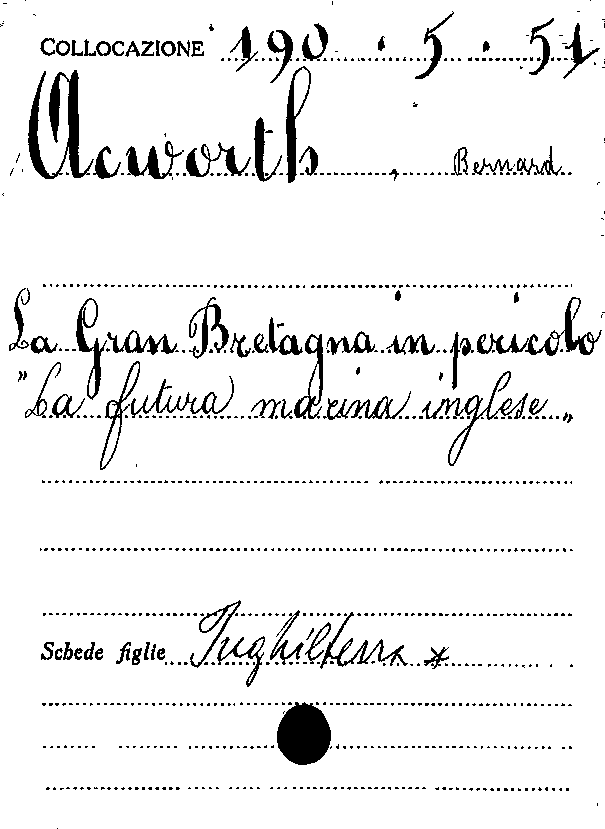 COLLOCAZIONE 190 . 5 . 51
Acworth , Bernard
La Gran Bretagna in pericolo
"La futura marina inglese"
Schede figlie Inghilterra *